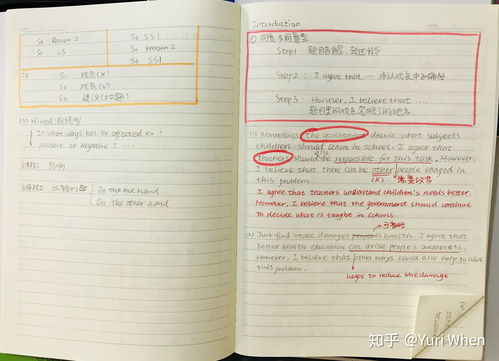 S4 Reason 2
S5 SS
S3 SS1
S4 reason 2
S5 SS1
IV
S1 观点(X)
S2 观点(V)
S3 建议(扣题)
(3) Mixed 混搭型
In what ways has xx affected xx?
positive or negative? ...
On the one hand
On the other hand
Introduction
Step 1:
Step 2: I agree that ... 承认观点中正确处
Step 3: However, I believe that ....
(1) Nowadays the government decide what subjects
children should learn in schools. I agree that
teachers should be responsible for this task. However,
I believe that there can be other people engaged in
this problem.
(X)
I agree that teachers understand children's needs better.
However, I believe that the government should continue
to decide what is taught in schools.
(2) Junk food intake damages people's health. I agree that
better health education can arise people's awareness.
However, I believe that other ways could also help to solve
this problem.
helps to reduce the damage
知乎 @Yuri When